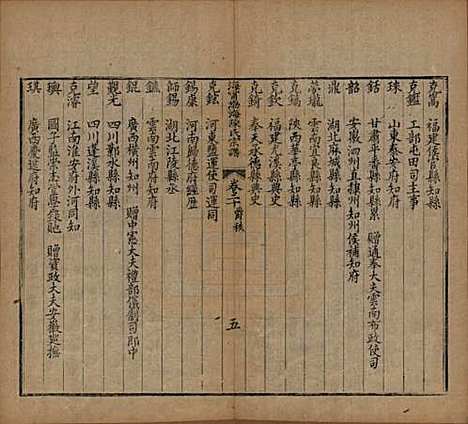 克嵩 福建侯官縣知縣
克鑑 工部屯田司主事
球 山東泰安府知府
銛 甘肅平番縣知縣 累贈通奉大夫雲南布政使司
韶 安徽泗州直隸州知州候補知府
鼎 湖北麻城縣知縣
夢瓏 陝西華亭縣知縣
克鎬
克欽 福建尤溪縣典史
克錡 奉天承德縣典史
海甯渤海陳氏宗譜 卷二十 爵秩 五
克鉉 河東鹽運使司運同
錫康 河南衛輝府經歷
師錫 湖北江陵縣丞
鑣 雲南雲南府知府
錕 廣西橫州知州 贈中憲大夫禮部儀制司郎中
觀光 四川鄰水縣知縣
望 四川蓬溪縣知縣
克濬 江南淮安府外河同知
璵 國子監典籍 贈資政大夫安徽巡撫
琪 廣西慶遠府知府